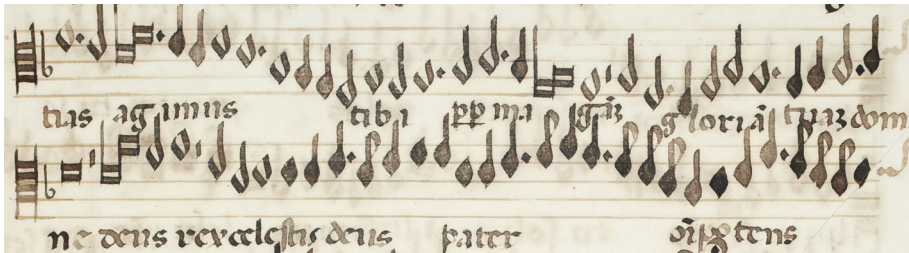 tias agimus tibi ꝓꝓ ma gā gloriā tuaꝫ dom
ne deus rex celestis deus pater oīpotens